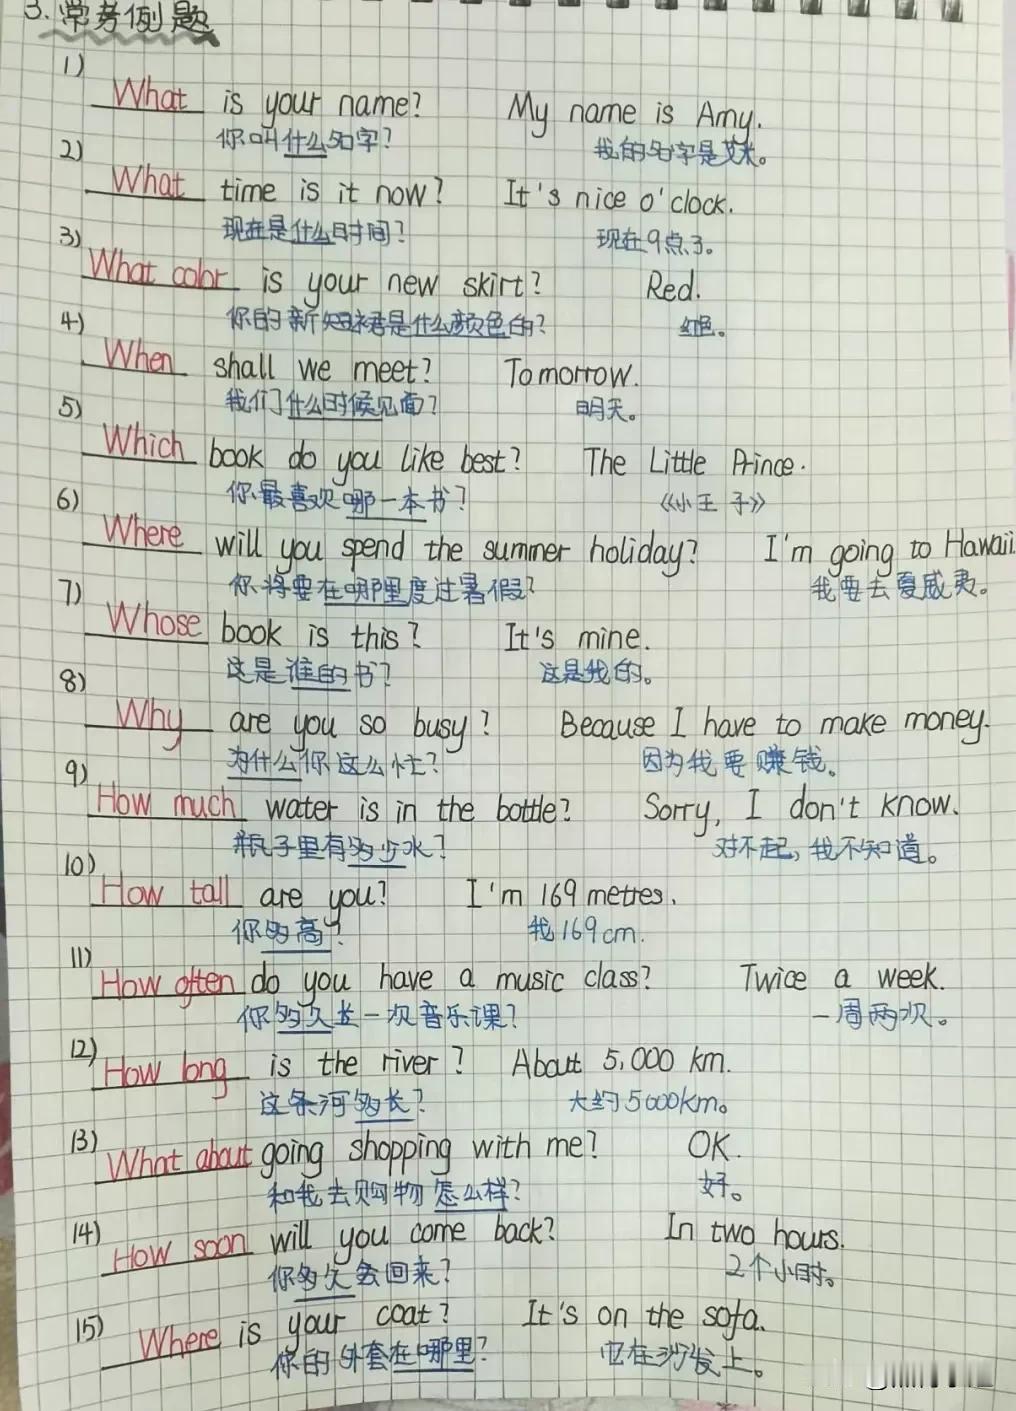 3. 常考例题
1) What is your name? My name is Amy.
你叫什么名字? 我的名字是艾米。
2) What time is it now? It's nice o'clock.
现在是什么时间? 现在9点了。
3) What color is your new skirt? Red.
你的新短裙是什么颜色的? 红色。
4) When shall we meet? Tomorrow.
我们什么时候见面? 明天。
5) Which book do you like best? The Little Prince.
你最喜欢哪一本书? 《小王子》
6) Where will you spend the summer holiday? I'm going to Hawaii
你将要在哪里度过暑假? 我要去夏威夷。
7) Whose book is this? It's mine.
这是谁的书? 这是我的。
8) Why are you so busy? Because I have to make money.
为什么你这么忙? 因为我要赚钱。
9) How much water is in the bottle? Sorry, I don't know.
瓶子里有多少水? 对不起,我不知道。
10) How tall are you? I'm 169 metres.
你多高? 我169cm.
11) How often do you have a music class? Twice a week.
你多久长一次音乐课? 一周两次。
12) How long is the river? About 5,000 km.
这条河多长? 大约5000km。
13) What about going shopping with me? OK.
和我去购物怎么样? 好。
14) How soon will you come back? In two hours.
你多久会回来? 2个小时。
15) Where is your coat? It's on the sofa.
你的外套在哪里? 它在沙发上。